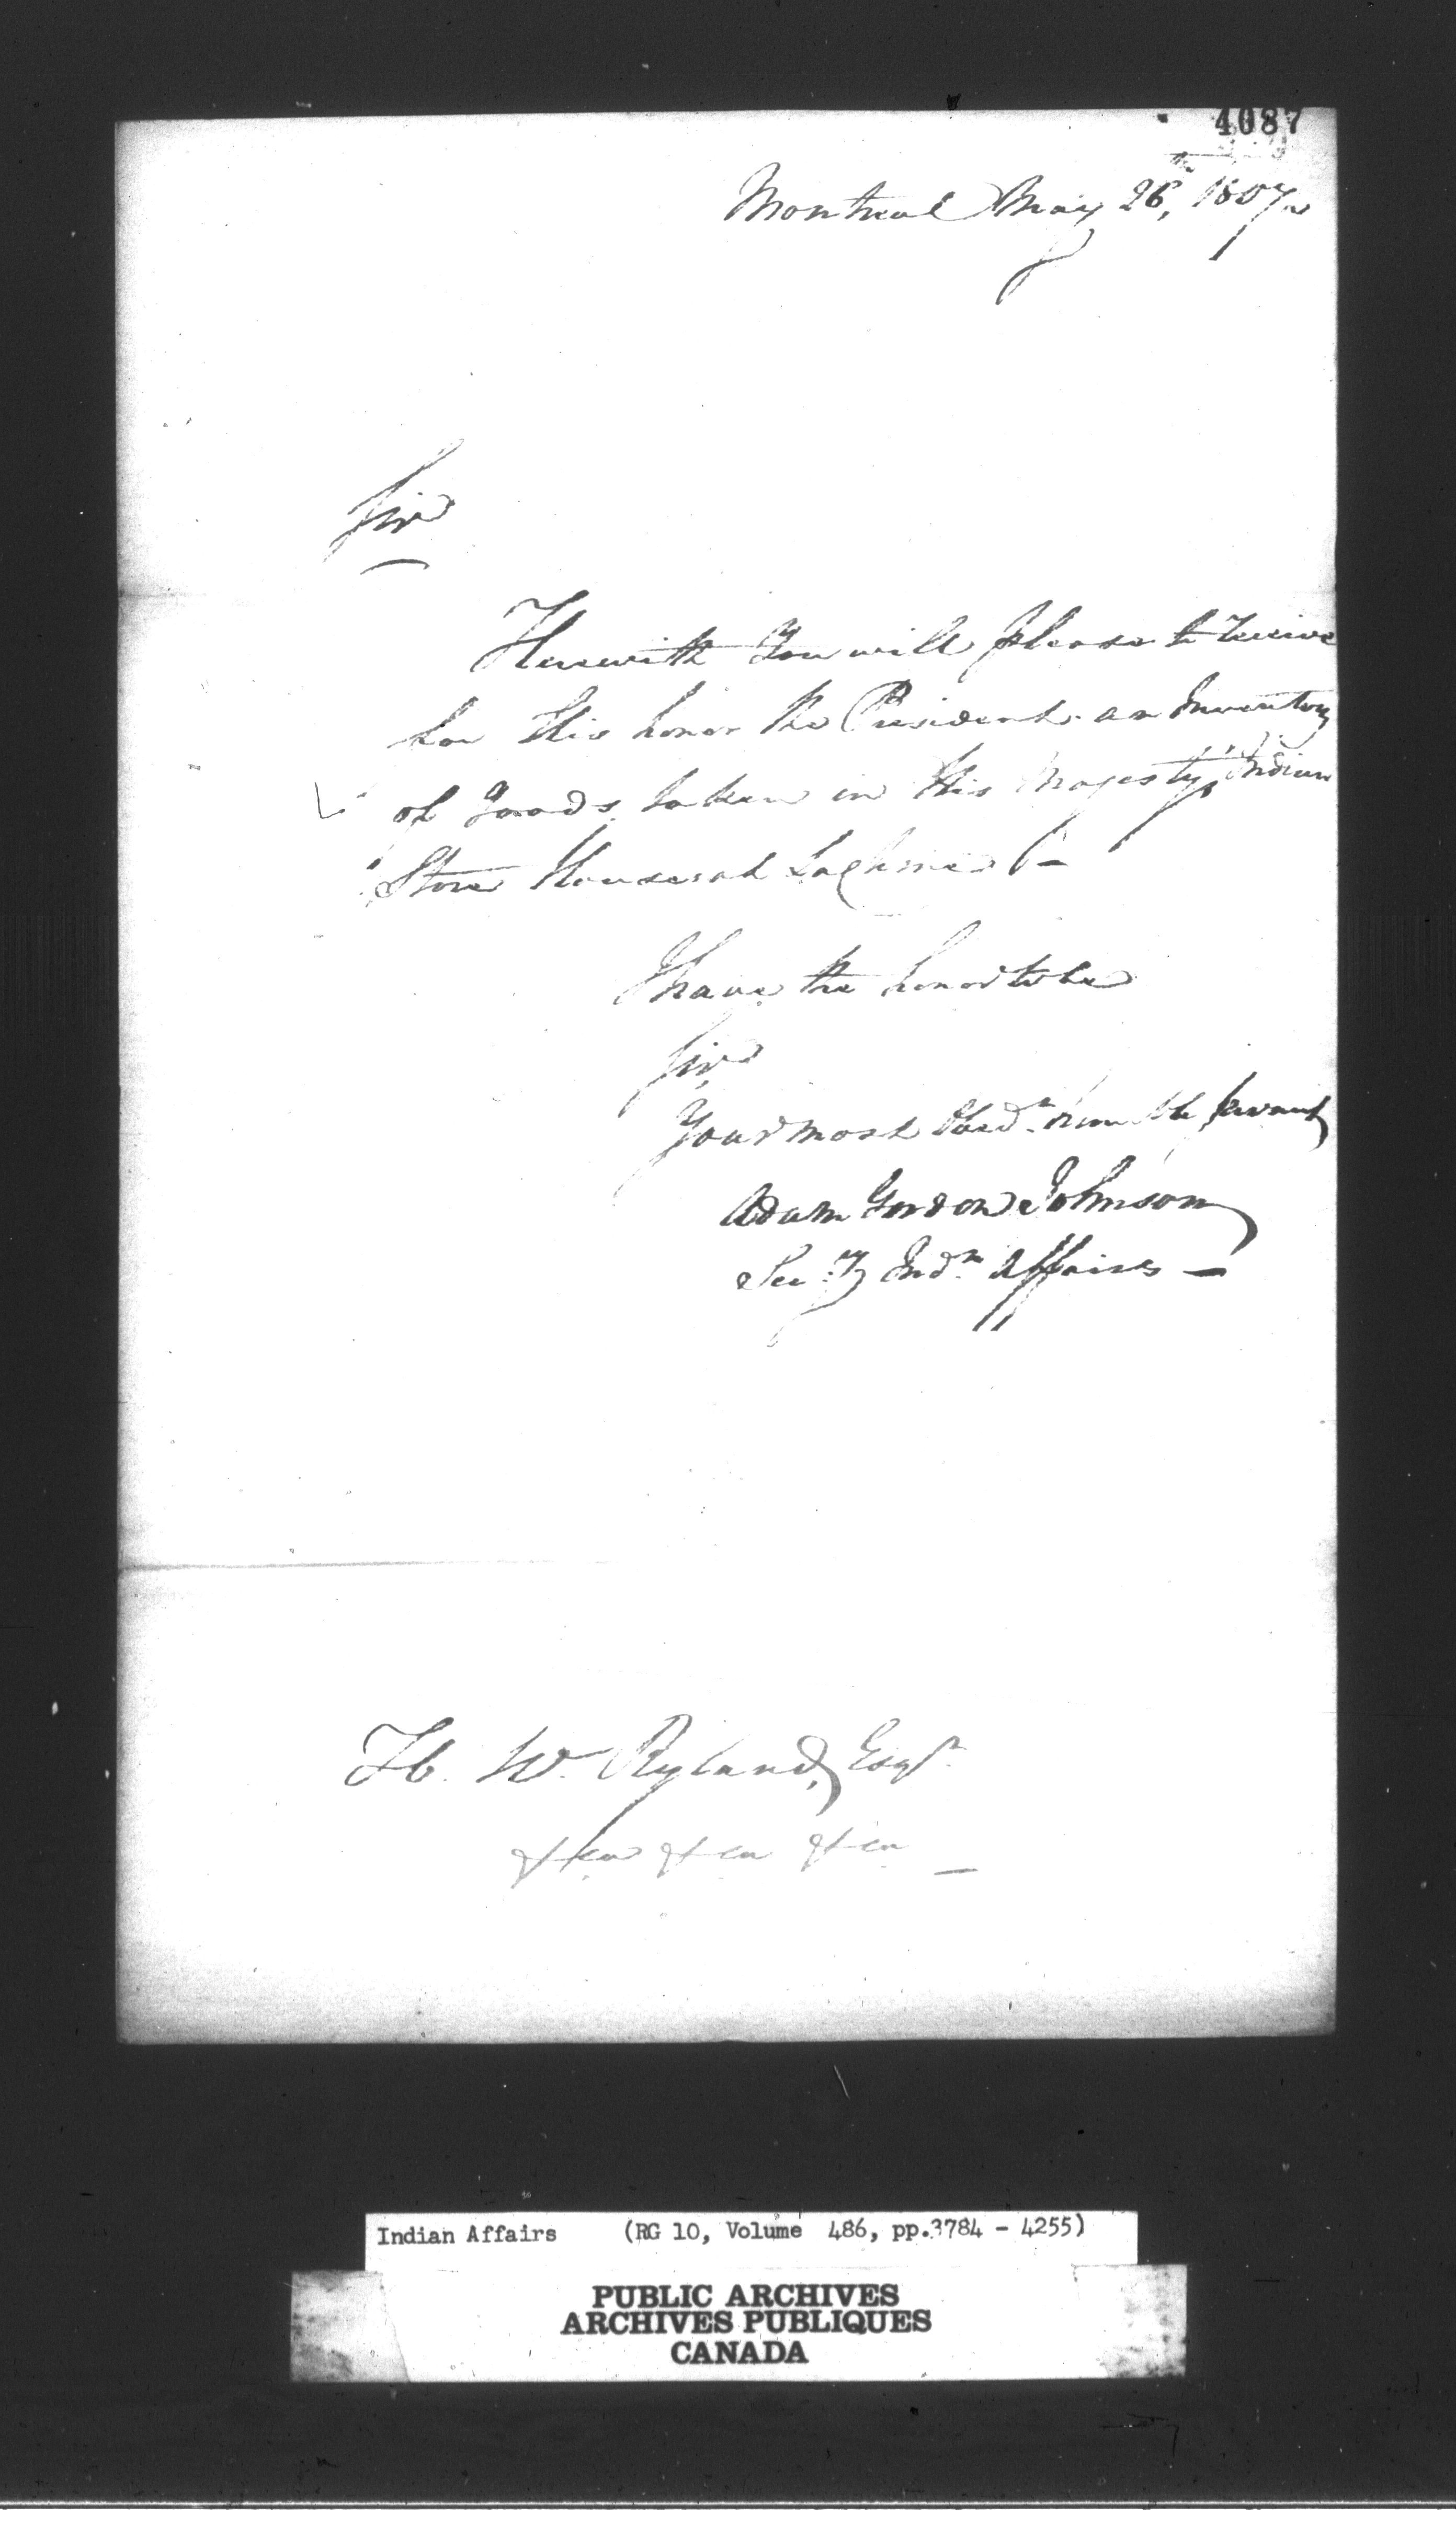 4087
Montreal May 26th, 1807
Sir
Herewith You will please to receive
for His honor the President an Inventory
of Goods taken in His Majesty's Indian
Store House at Lachine
I have the honor to be
Sir
Your most Obedt humble Servant
Adam Gordon Johnson
Secty Indn Affairs —
H. W. Ryland, Esqr
&ca &ca &ca —
Indian Affairs (RG 10, Volume 486, pp. 3784 - 4255)
PUBLIC ARCHIVES
ARCHIVES PUBLIQUES
CANADA